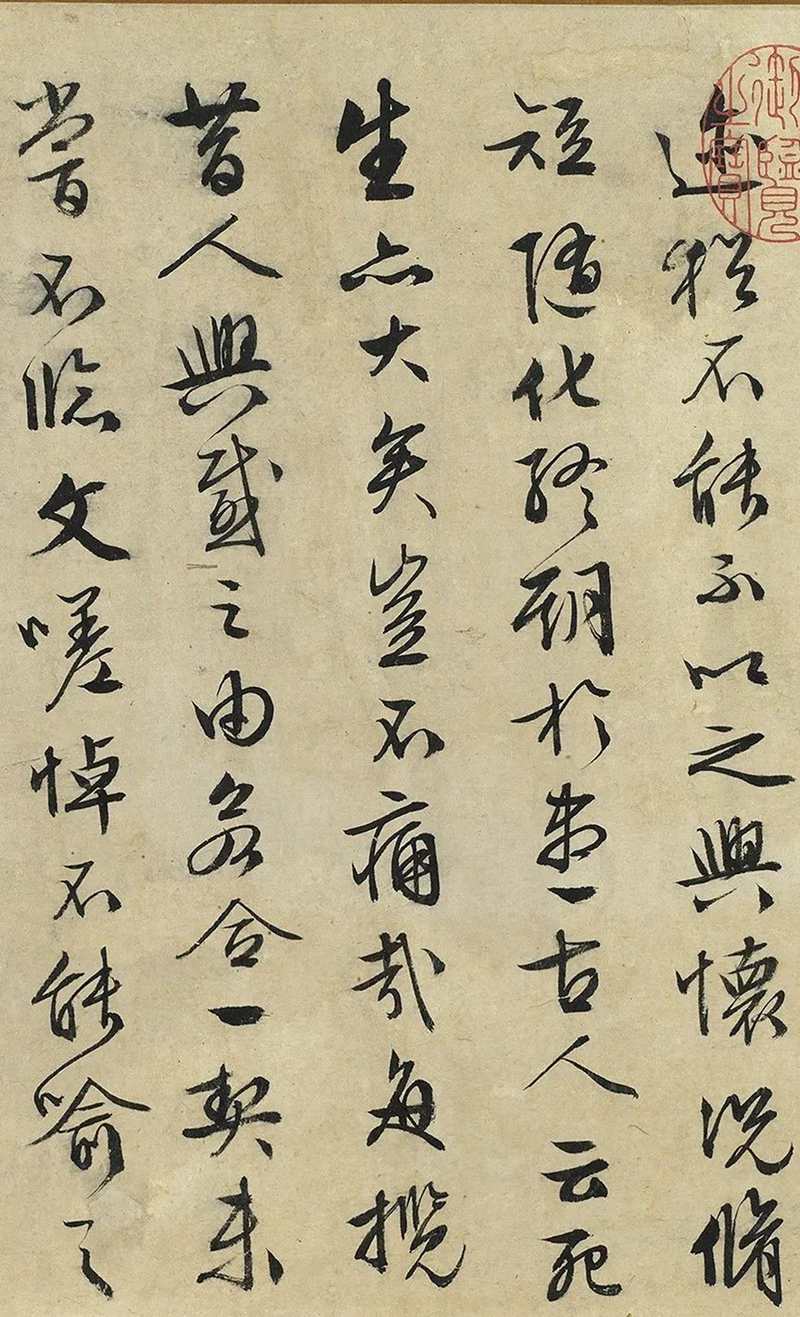 迹猶不能不以之興懷況脩
短隨化終期於盡古人云死
生亦大矣豈不痛哉每攬
昔人興感之由若合一契未
嘗不臨文嗟悼不能喻之
御覽之寶